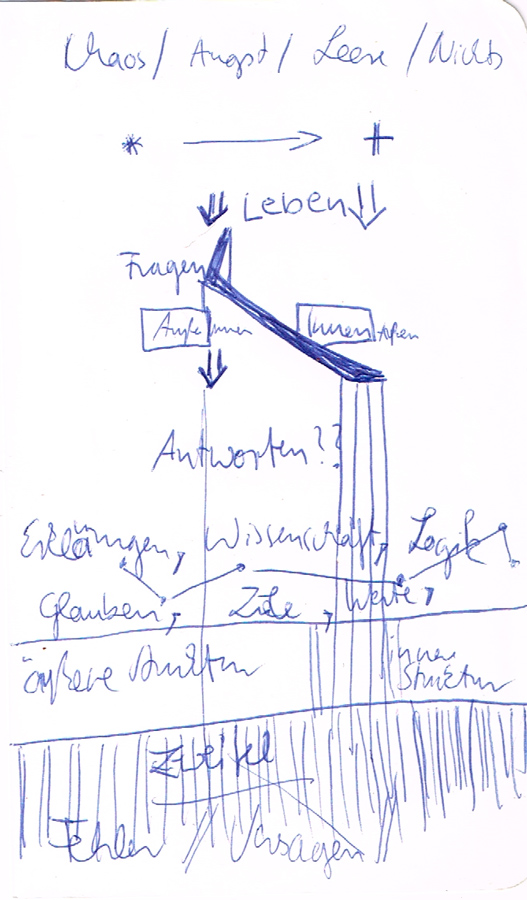 Chaos / Angst / Leere / Nichts
* → +
Leben
Fragen
Außen Innen Innen Außen
Antworten??
Erklärungen, Wissenschaft, Logik
Glauben, Ziele, Werte,
äußere Struktur innere Struktur
Zweifel
Fehler // Versagen